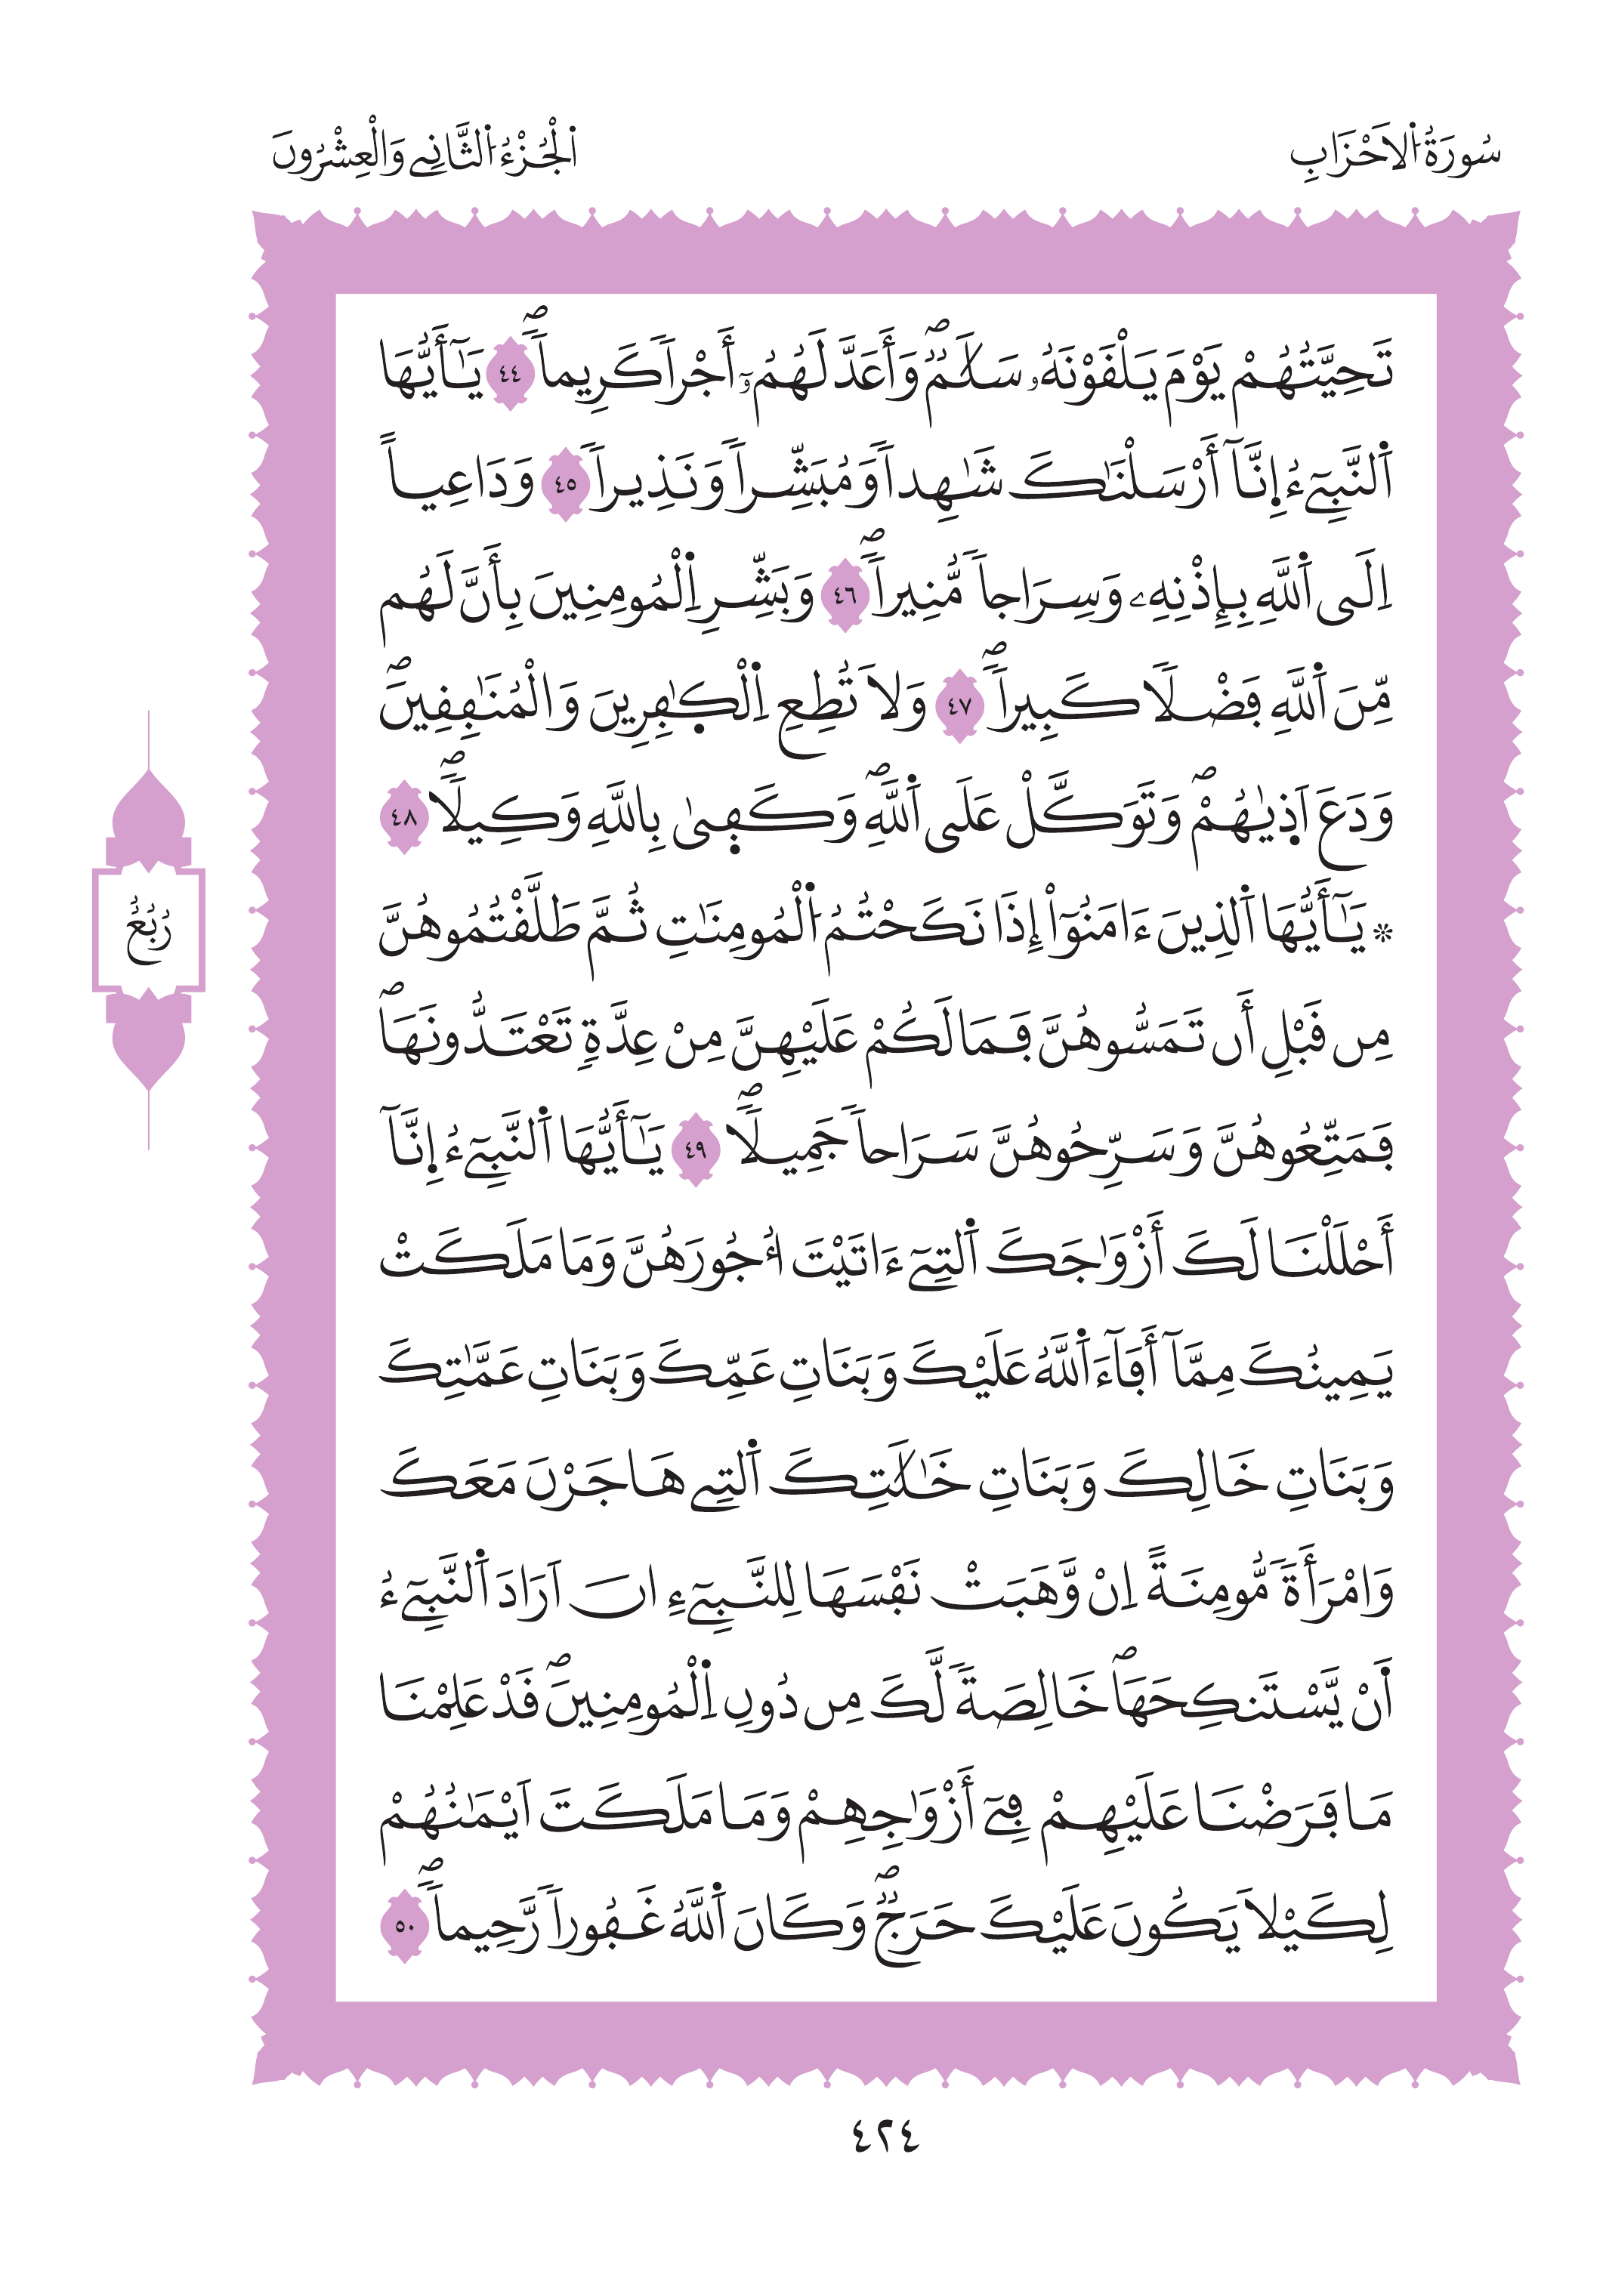 سُورَةُ اُ۬لَاحْزَابِ
اَ۬لْجُزْءُ اُ۬لثَّانِے وَالْعِشْرُونَ
تَحِيَّتُهُمْ يَوْمَ يَلْقَوْنَهُۥ سَلَٰمٞۖ وَأَعَدَّ لَهُمُۥٓ أَجْراٗ كَرِيماٗۖ ٤٤ يَٰٓأَيُّهَا
اَ۬لنَّبِےٓءُ اِ۪نَّآ أَرْسَلْنَٰكَ شَٰهِداٗ وَمُبَشِّراٗ وَنَذِيراٗ ٤٥ وَدَاعِياً
اِلَى اَ۬للَّهِ بِإِذْنِهِۦ وَسِرَاجاٗ مُّنِيراٗۖ ٤٦ وَبَشِّرِ اِ۬لْمُومِنِينَ بِأَنَّ لَهُم
مِّنَ اَ۬للَّهِ فَضْلاٗ كَبِيراٗۖ ٤٧ وَلَا تُطِعِ اِ۬لْكٰ۪فِرِينَ وَالْمُنَٰفِقِينَۖ
وَدَعَ اَذ۪يٰهُمْۖ وَتَوَكَّلْ عَلَى اَ۬للَّهِۖ وَكَف۪يٰ بِاللَّهِ وَكِيلاٗۖ ٤٨
۞ يَٰٓأَيُّهَا اَ۬لذِينَ ءَامَنُوٓاْ إِذَا نَكَحْتُمُ اُ۬لْمُومِنَٰتِ ثُمَّ طَلَّقْتُمُوهُنَّ
مِن قَبْلِ أَن تَمَسُّوهُنَّ فَمَا لَكُمْ عَلَيْهِنَّ مِنْ عِدَّةٖ تَعْتَدُّونَهَاۖ
فَمَتِّعُوهُنَّ وَسَرِّحُوهُنَّ سَرَاحاٗ جَمِيلاٗۖ ٤٩ يَٰٓأَيُّهَا اَ۬لنَّبِےٓءُ اِ۪نَّآ
أَحْلَلْنَا لَكَ أَزْوَٰجَكَ اَ۬لتِےٓ ءَاتَيْتَ أُجُورَهُنَّ وَمَا مَلَكَتْ
يَمِينُكَ مِمَّآ أَفَآءَ اَ۬للَّهُ عَلَيْكَ وَبَنَاتِ عَمِّكَ وَبَنَاتِ عَمَّٰتِكَ
وَبَنَاتِ خَالِكَ وَبَنَاتِ خَٰلَٰتِكَ اَ۬لتِے هَاجَرْنَ مَعَكَ
وَامْرَأَةٗ مُّومِنَةً اِنْ وَّهَبَتْ نَفْسَهَا لِلنَّبِےٓءِ انَ اَرَادَ اَ۬لنَّبِےٓءُ
أَنْ يَّسْتَنكِحَهَاۖ خَالِصَةٗ لَّكَ مِن دُونِ اِ۬لْمُومِنِينَۖ قَدْ عَلِمْنَا
مَا فَرَضْنَا عَلَيْهِمْ فِےٓ أَزْوَٰجِهِمْ وَمَا مَلَكَتَ اَيْمَٰنُهُمْ
لِكَيْلَا يَكُونَ عَلَيْكَ حَرَجٞۖ وَكَانَ اَ۬للَّهُ غَفُوراٗ رَّحِيماٗۖ ٥٠
رُبُعُ
٤٢٤